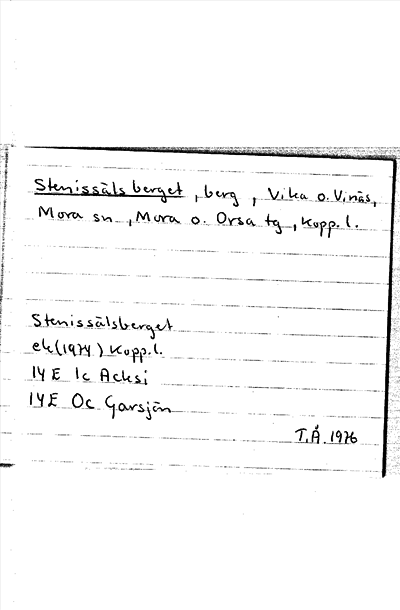 Stenissälsberget, berg, Vika o. Vinäs,
Mora sn, Mora o. Orsa tg, Kopp. l.
Stenissälsberget
ek (1974) Kopp. l.
14 E 1c Acksi
14 E 0c Garsjön
T.Å. 1976